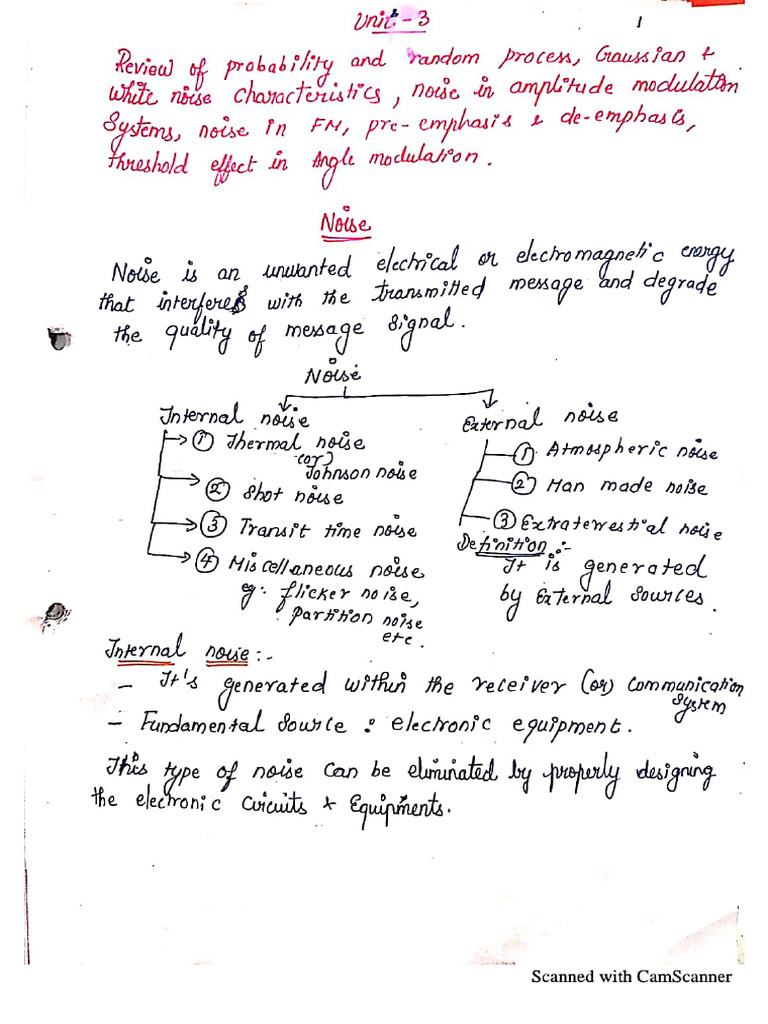 Unit - 3
1
Review of probability and random process, Gaussian +
White noise characteristics, noise in amplitude modulation
Systems, noise in FM, pre-emphasis & de-emphasis,
threshold effect in Angle modulation.
Noise
Noise is an unwanted electrical or electromagnetic energy
that interferes with the transmitted message and degrade
the quality of message signal.
Noise
Internal noise
① Thermal noise
(or)
Johnson noise
② Shot noise
③ Transit time noise
④ Miscellaneous noise
eg: flicker noise,
partition noise
etc.
External noise
① Atmospheric noise
② Man made noise
③ Extraterrestial noise
Definition :-
It is generated
by External sources.
Internal noise :-
- It's generated within the receiver (or) communication
system
- Fundamental source : electronic equipment.
This type of noise can be eliminated by properly designing
the electronic circuits + Equipments.
Scanned with CamScanner